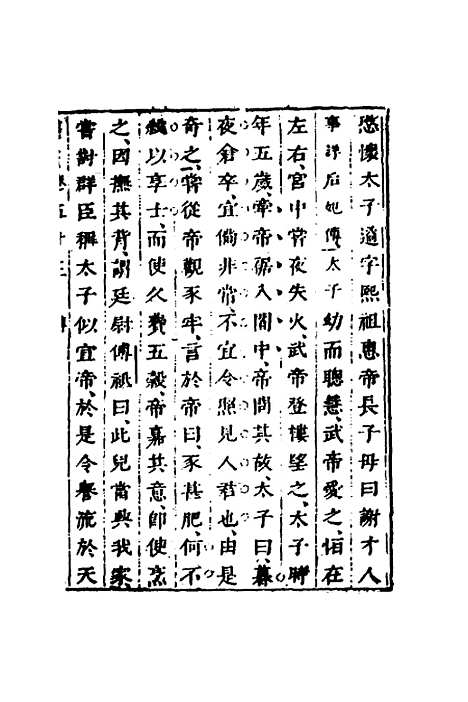 愍懷太子遹字熙祖惠帝長子母曰謝才人
事詳后妃傳太子幼而聰慧、武帝愛之、恒在
左右、宮中嘗夜失火、武帝登樓望之、太子時
年五歲、牽帝裾入闇中、帝問其故、太子曰、暮
夜倉卒、宜備非常、不宜令照見人君也、由是
奇之、嘗從帝觀豕牢、言於帝曰、豕甚肥、何不
殺以享士、而使久費五穀、帝嘉其意、即使烹
之、因撫其背、謂廷尉傅祗曰、此兒當興我家、
嘗對群臣稱太子似宣帝、於是令譽流於天